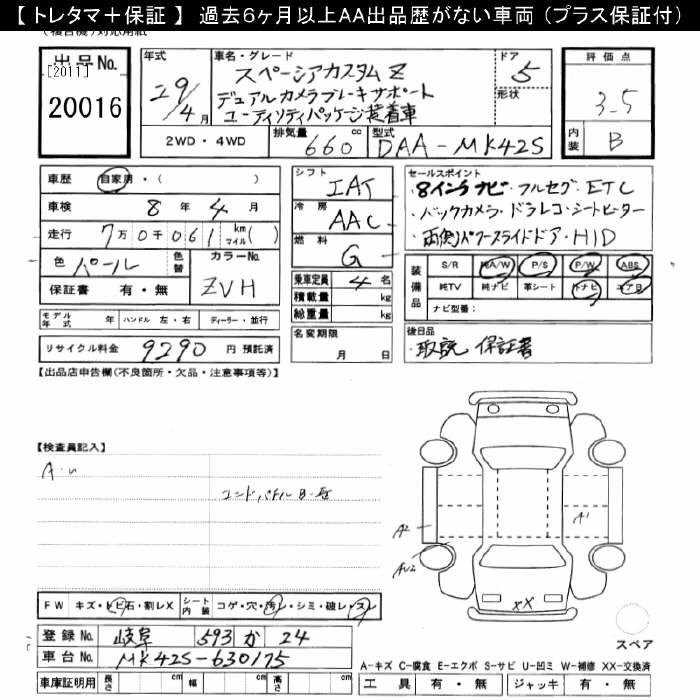 【 トレタマ＋保証 】 過去6ヶ月以上AA出品歴がない車両（プラス保証付）
出品No.
[2011]
20016
年式
29/4月
車名・グレード
スペーシアカスタムZ
デュアルカメラブレーキサポート
ユーティリティパッケージ装着車
ドア
5
形状
評価点
3.5
内装
B
2WD・4WD
排気量
660 cc
型式
DAA-MK42S
車歴 自家用・( )
車検 8年 4月
走行 7万0千061 km マイル( )
色 パール
色替
カラーNo.
ZVH
保証書 有・無
シフト
IAT
冷房
AAC
燃料
G
乗車定員 4名
積載量 kg
総重量 kg
セールスポイント
・8インチナビ・フルセグ・ETC
・バックカメラ・ドラレコ・シートヒーター
・両側パワースライドドア・HID
装備品
S/R 純A/W P/S P/W ABS
純TV 純ナビ 革シート エアB
ナビ型番：
モデル年式 年 ハンドル 左・右 ディーラー・並行
リサイクル料金 9290 円 預託済
名変期限
月 日
後日品
取説 保証書
【出品店申告欄(不良箇所・欠品・注意事項等)】
【検査員記入】
A2
A1
XX
スペア
FW キズ・トビ石・割レX シート内装 コゲ・穴・汚レ・シミ・破レ・スレ
登録No. 岐阜 593 か 24
車台No. MK42S-630175
車庫証明用 長さ cm 幅 cm 高さ cm
A-キズ C-腐食 E-エクボ S-サビ U-凹ミ W-補修 XX-交換済
工具 有・無 ジャッキ 有・無